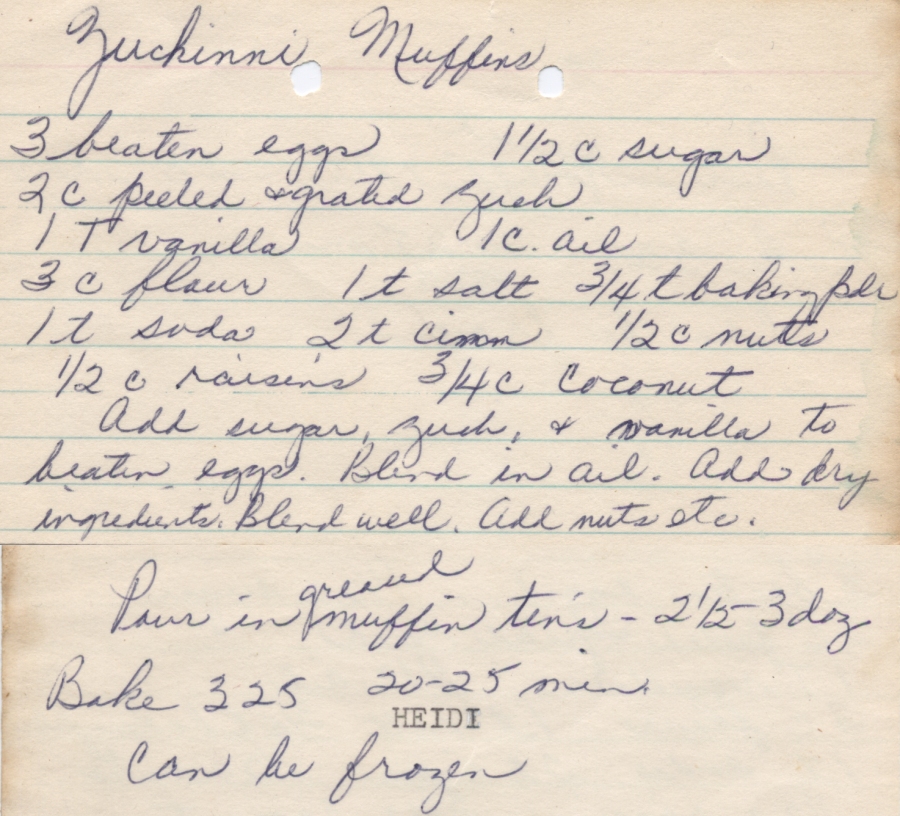 Zuchinni Muffins
3 beaten eggs 1 1/2 c sugar
2 c peeled & grated zuch
1 T vanilla 1 c. oil
3 c flour 1 t salt 3/4 t baking pdr
1 t soda 2 t cinnn 1/2 c nuts
1/2 c raisins 3/4 c coconut
Add sugar, zuch, & vanilla to
beaten eggs. Blend in oil. Add dry
ingredients. Blend well. Add nuts etc.
Pour in greased muffin tins - 2 1/2 - 3 doz
Bake 325 20-25 min.
HEIDI
Can be frozen